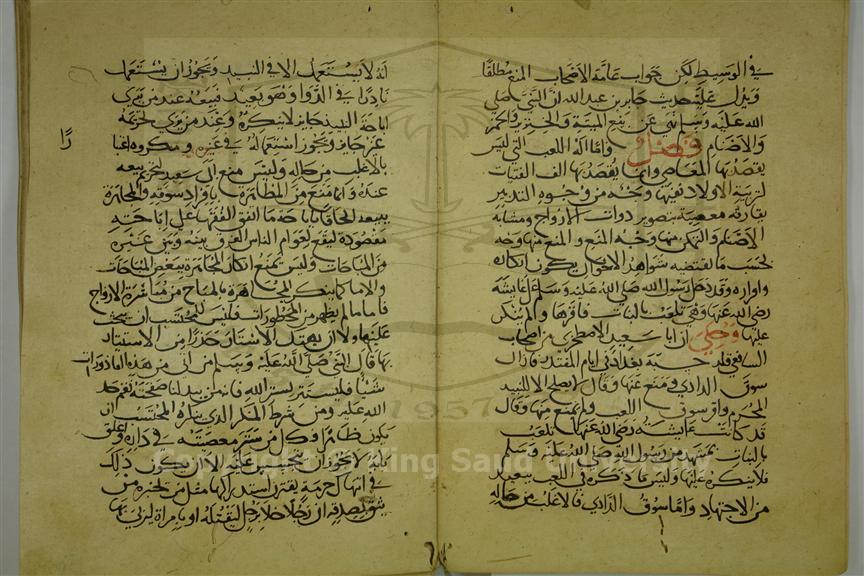 في الوسيط لكن جواب عامة الاصحاب المنع مطلقا
ويدل عليه حديث جابر بن عبد الله ان النبي صلى
الله عليه وسلم نهي عن بيع الميتة والخنزير والخمر
والاصنام فصل واما اللعب التي ليس
يقصد بها المعاصي وانما يقصد بها الف البنات
لتربية الاولاد ففيها وجه من وجوه التدبير
يقارفه معصية بتصوير ذوات الارواح ومشابه
الاصنام والتمكن منها وجه المنع و المنع منها وجه
بحسب ما تقتضيه شواهد الاحوال يكون انكاره
واقراره وقد دخل رسول الله صلى الله عليه وسلم على عايشة
رضي الله عنها وهي تلعب بالبنات فاقرها ولم ينكر
عليها وحكي ان ابا سعيد الاصطخري من اصحاب
الشافعي قلد حسبة بغداد في ايام المقتدر فازال
سوق الدادي ومنع عنها وقال لا يصلح الا للنبيذ
المحرم واقر سوق اللعب ولم يمنع منها وقال
قد كانت عايشة رضي الله عنها تلعب
بالبنات بمشهد من رسول الله صلى الله عليه وسلم
فلا ينكره عليها وليس ما ذكره في اللعب ببعيد
من الاجتهاد واما سوق الدادي فالاغلب من حاله
انه لا يستعمل الا في النبيذ ويجوز ان يستعمل
نادرا في الدوا وهو بعيد فبيعه عند من يرى
اباحة النبيذ جايز لا ينكره وعند من يرى تحريمه
غير جايز ويجوز استعماله في غيره ومكروه اعتبارا
بالاغلب من حاله وليس منع ابي سعيد لتحريم بيعه
عنده وانما منع من المظاهرة بافراد سوقه والمجاهرة
ببيعه الحاقا باباحة ما اتفق الفقها على اباحته
مقصودة ليقع لعوام الناس الفرق بينه وبين غيره
من المباحات وليس يمتنع انكار المجاهرة ببعض المباحات
والاما كما ينكر المجاهرة بالمباح من مباشرة الازواج
فاما ما لم يظهر من المحظورات فليس للمحتسب ان يبحث
عليها ولا ان يهتك الاستار حذرا من الاستتار
بها قال النبي صلى الله عليه وسلم من اتى من هذه القاذورات
شيئا فليستتر بستر الله فانه من يبد لنا صفحته نقم حد
الله عليه ومن شرط المنكر الذي ينكره المحتسب ان
يكون ظاهرا وكل من ستر معصيته في داره واغلق
بابه لا يجوز ان يتجسس عليه الا ان يكون ذلك
في انتهاك حرمة يفوت استدراكها مثل ان يخبره من
يثق بصدقه ان رجلا خلا برجل ليقتله او بامراة ليزني بها
Copyright © King Saud University
1957